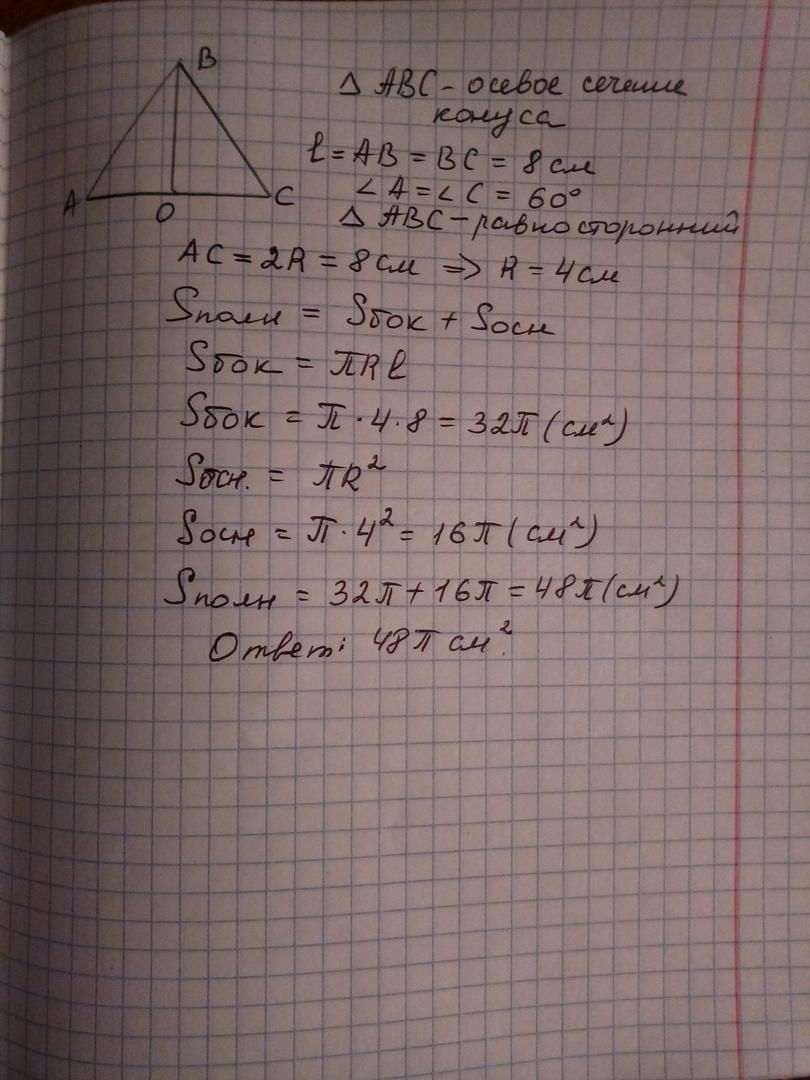 B
A
O
C
Δ ABC - осевое сечение
конуса
l = AB = BC = 8 см
∠A = ∠C = 60°
Δ ABC - равносторонний
AC = 2R = 8 см => R = 4 см
Sполн = Sбок + Sосн
Sбок = πRl
Sбок = π · 4 · 8 = 32π (см²)
Sосн. = πR²
Sосн = π · 4² = 16π (см²)
Sполн = 32π + 16π = 48π (см²)
Ответ: 48π см².